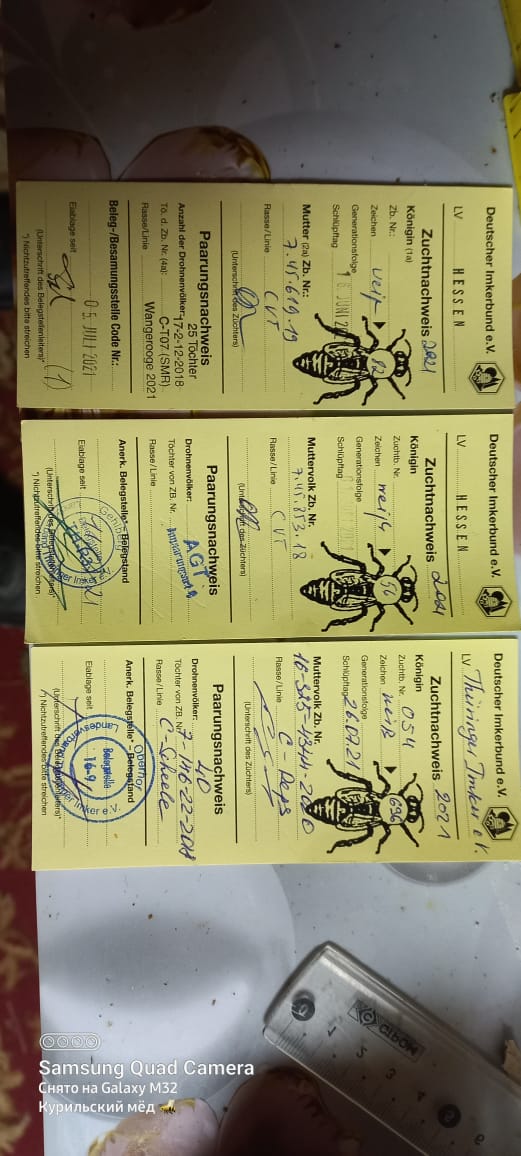 Deutscher Imkerbund e.V.
LV HESSEN
Zuchtnachweis 2021
Königin (1a)
Zb. Nr.:
Zeichen weiß
12
Generationsfolge
Schlüpftag 1 8. JUNI
Mutter (2a) Zb. Nr.:
7.45.619.19
Rasse/Linie CVT
(Unterschrift des Züchters)
Paarungsnachweis
25 Töchter
Anzahl der Drohnenvölker:
17-2-12-2018
Tö. d. Zb. Nr. (4a):
C-T07 (SMR)
Rasse/Linie
Wangerooge 2021
Beleg-/Besamungsstelle Code Nr.:
0 5. JULI 2021
Eiablage seit
(1)
(Unterschrift des Belegstellenleiters)*
*) Nichtzutreffendes bitte streichen
Deutscher Imkerbund e.V.
LV HESSEN
Zuchtnachweis 2021
Königin
Zuchtb. Nr.
Zeichen weiß
56
Generationsfolge
Schlüpftag
Muttervolk Zb. Nr.
7.45.853.18
Rasse/Linie CVT
(Unterschrift des Züchters)
Paarungsnachweis
Drohnenvölker: AGT
Töchter von ZB. Nr.
Rasse/Linie
Anerk. Belegstelle*-Belegstand
Eiablage seit
21
(Unterschrift des Belegstellenleiters)*
*) Nichtzutreffendes bitte streichen
Deutscher Imkerbund e.V.
LV Thüringer Imker e.V.
Zuchtnachweis 2021
Königin
Zuchtb. Nr. 054
Zeichen weiß
696
Generationsfolge
Schlüpftag 26.07.21
Muttervolk Zb. Nr.
Rasse/Linie C-Peps
(Unterschrift des Züchters)
Paarungsnachweis
Drohnenvölker: 40
Töchter von ZB. Nr.
Rasse/Linie C-Scheele
Anerk. Belegstelle*-Belegstand
Oberhof
Belegstelle
16-9
Landesverband Thüringer Imker e.V.
Eiablage seit
(Unterschrift des Belegstellenleiters)*
*) Nichtzutreffendes bitte streichen
Samsung Quad Camera
Снято на Galaxy M32
Курильский мёд